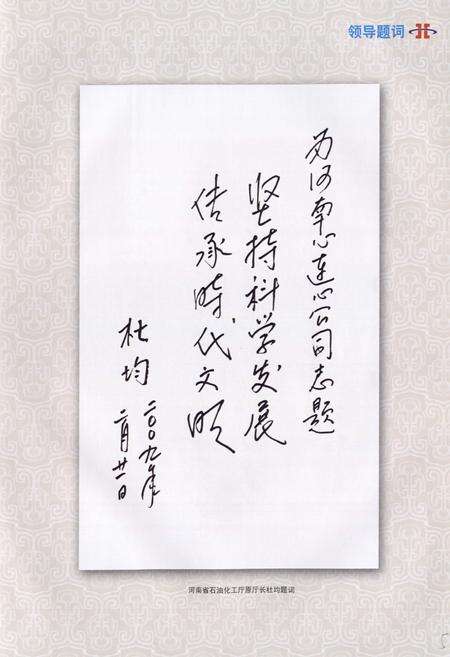 领导题词
为河南心連心公司志题
坚持科学发展
传承時代文明
杜均
二〇〇九年
二月廿一日
河南省石油化工厅原厅长杜均题词
5